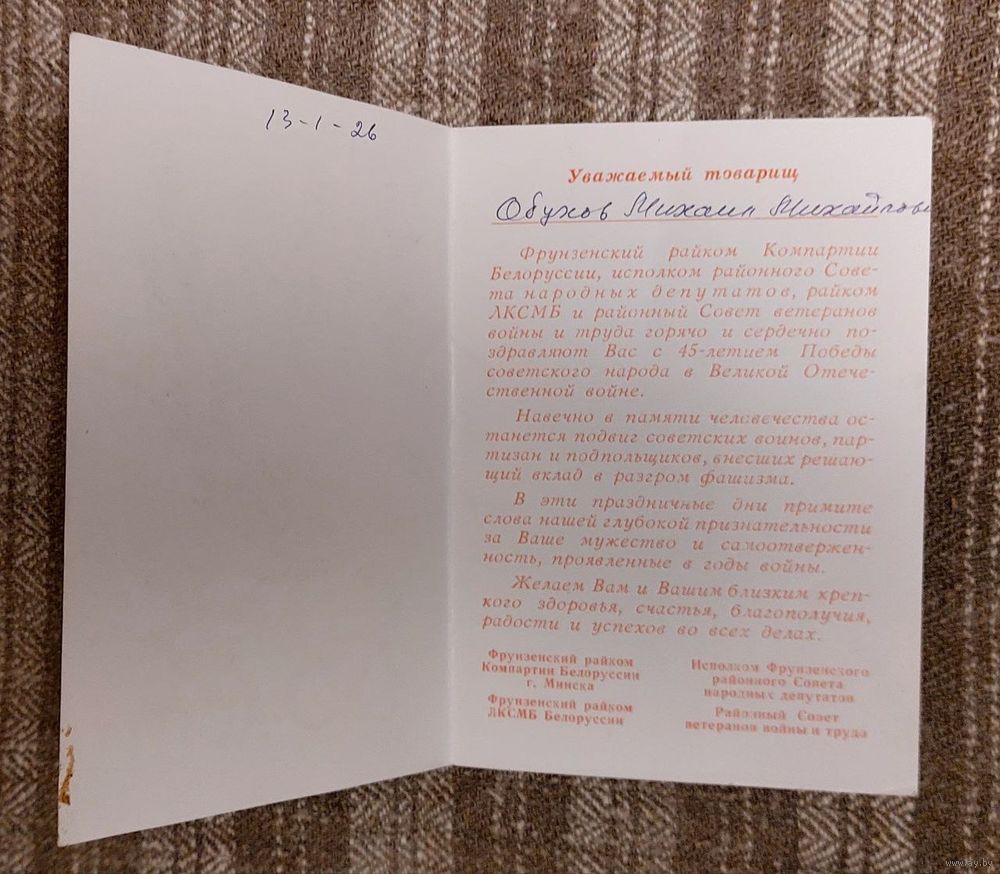 13-1-26
Уважаемый товарищ
Обухов Михаил Михайлови
Фрунзенский райком Компартии
Белоруссии, исполком районного Сове-
та народных депутатов, райком
ЛКСМБ и районный Совет ветеранов
войны и труда горячо и сердечно по-
здравляют Вас с 45-летием Победы
советского народа в Великой Отече-
ственной войне.
Навечно в памяти человечества ос-
танется подвиг советских воинов, пар-
тизан и подпольщиков, внесших решаю-
щий вклад в разгром фашизма.
В эти праздничные дни примите
слова нашей глубокой признательности
за Ваше мужество и самоотвержен-
ность, проявленные в годы войны.
Желаем Вам и Вашим близким креп-
кого здоровья, счастья, благополучия,
радости и успехов во всех делах.
Фрунзенский райком
Компартии Белоруссии
г. Минска
Фрунзенский райком
ЛКСМБ Белоруссии
Исполком Фрунзенского
районного Совета
народных депутатов
Районный Совет
ветеранов войны и труда
www.ay.by